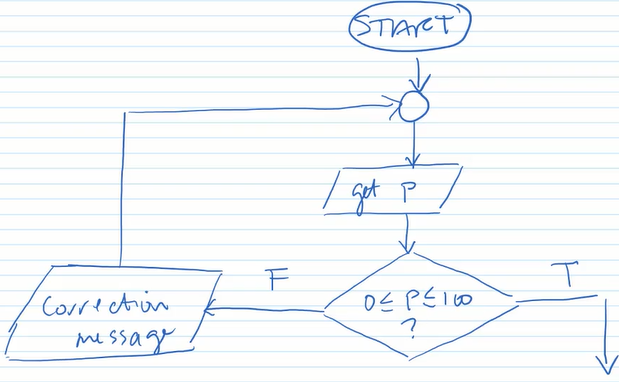 START
get P
F
T
0 ≤ P ≤ 100
?
Correction
message